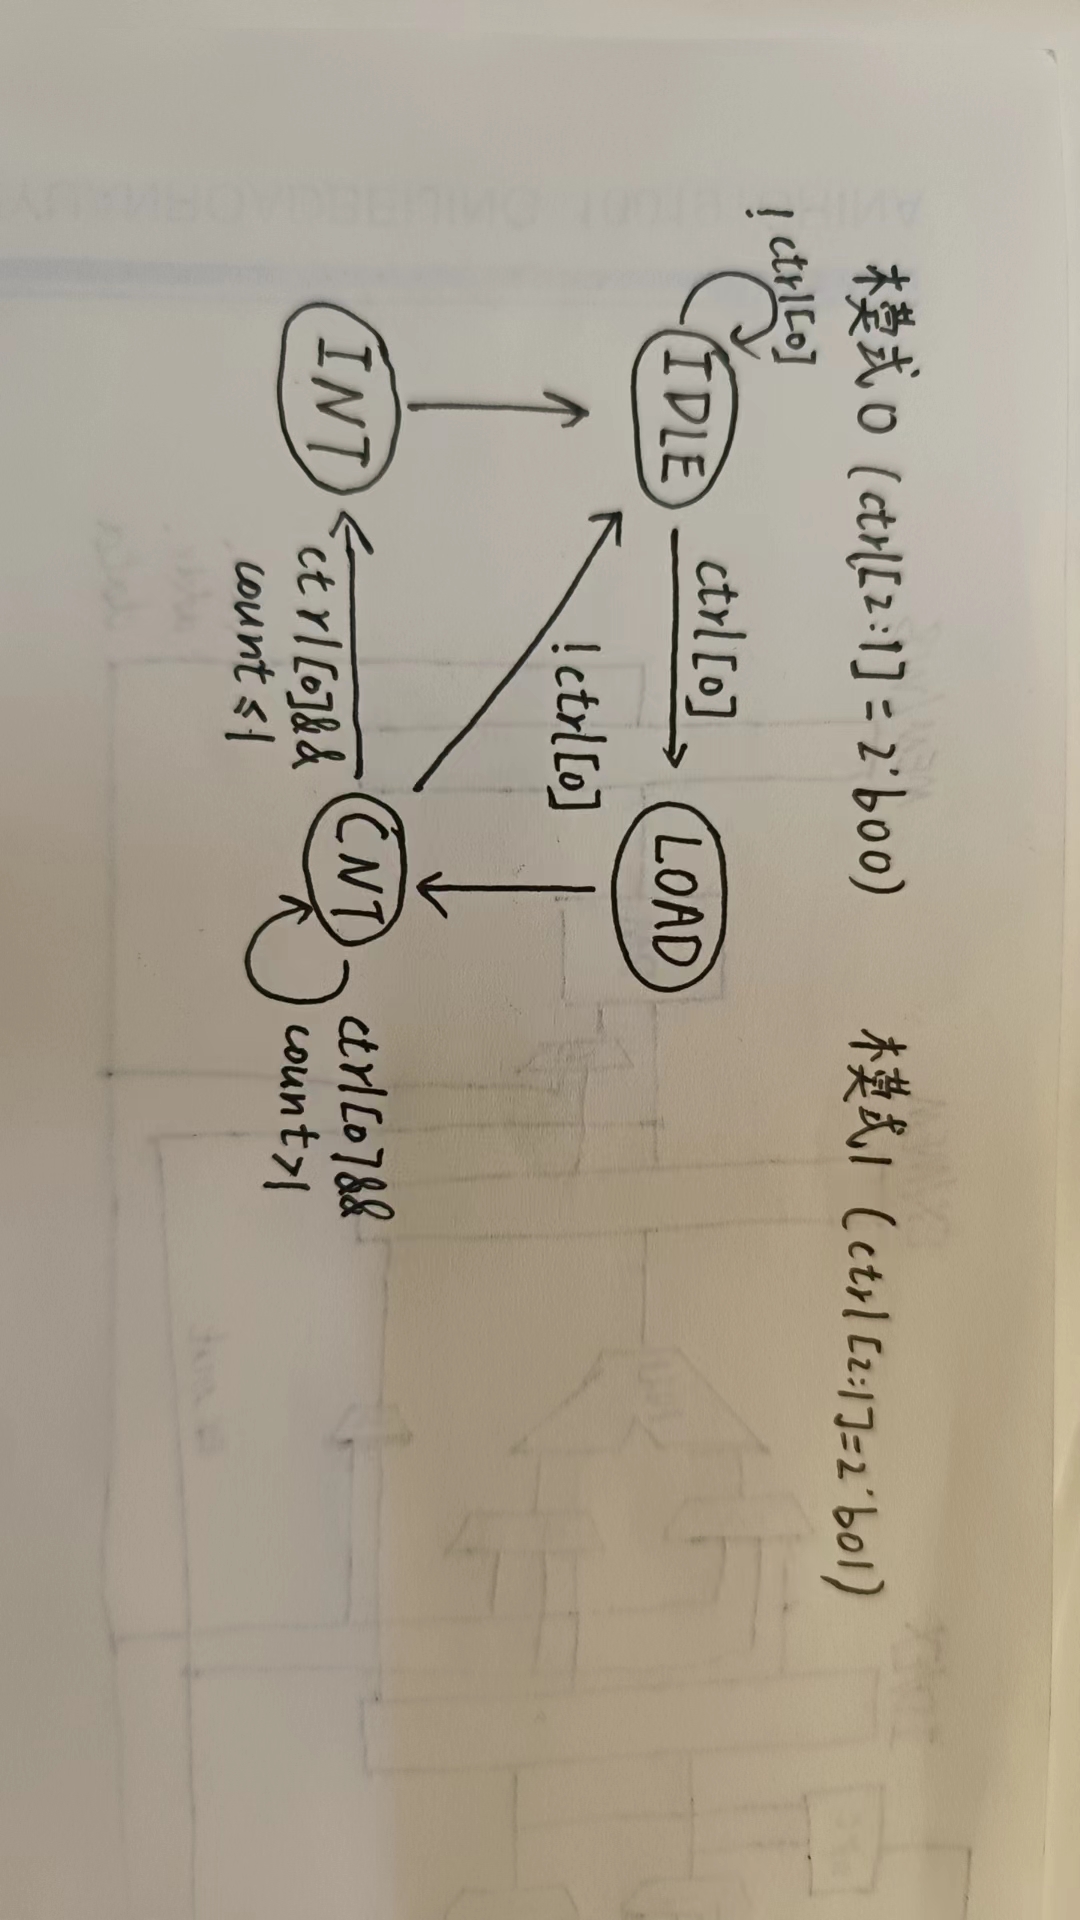 模式0 (ctrl[2:1]=2'b00)
模式1 (ctrl[2:1]=2'b01)
!ctrl[0]
IDLE
ctrl[0]
LOAD
!ctrl[0]
INT
ctrl[0]&&
count≤1
CNT
ctrl[0]&&
count>1